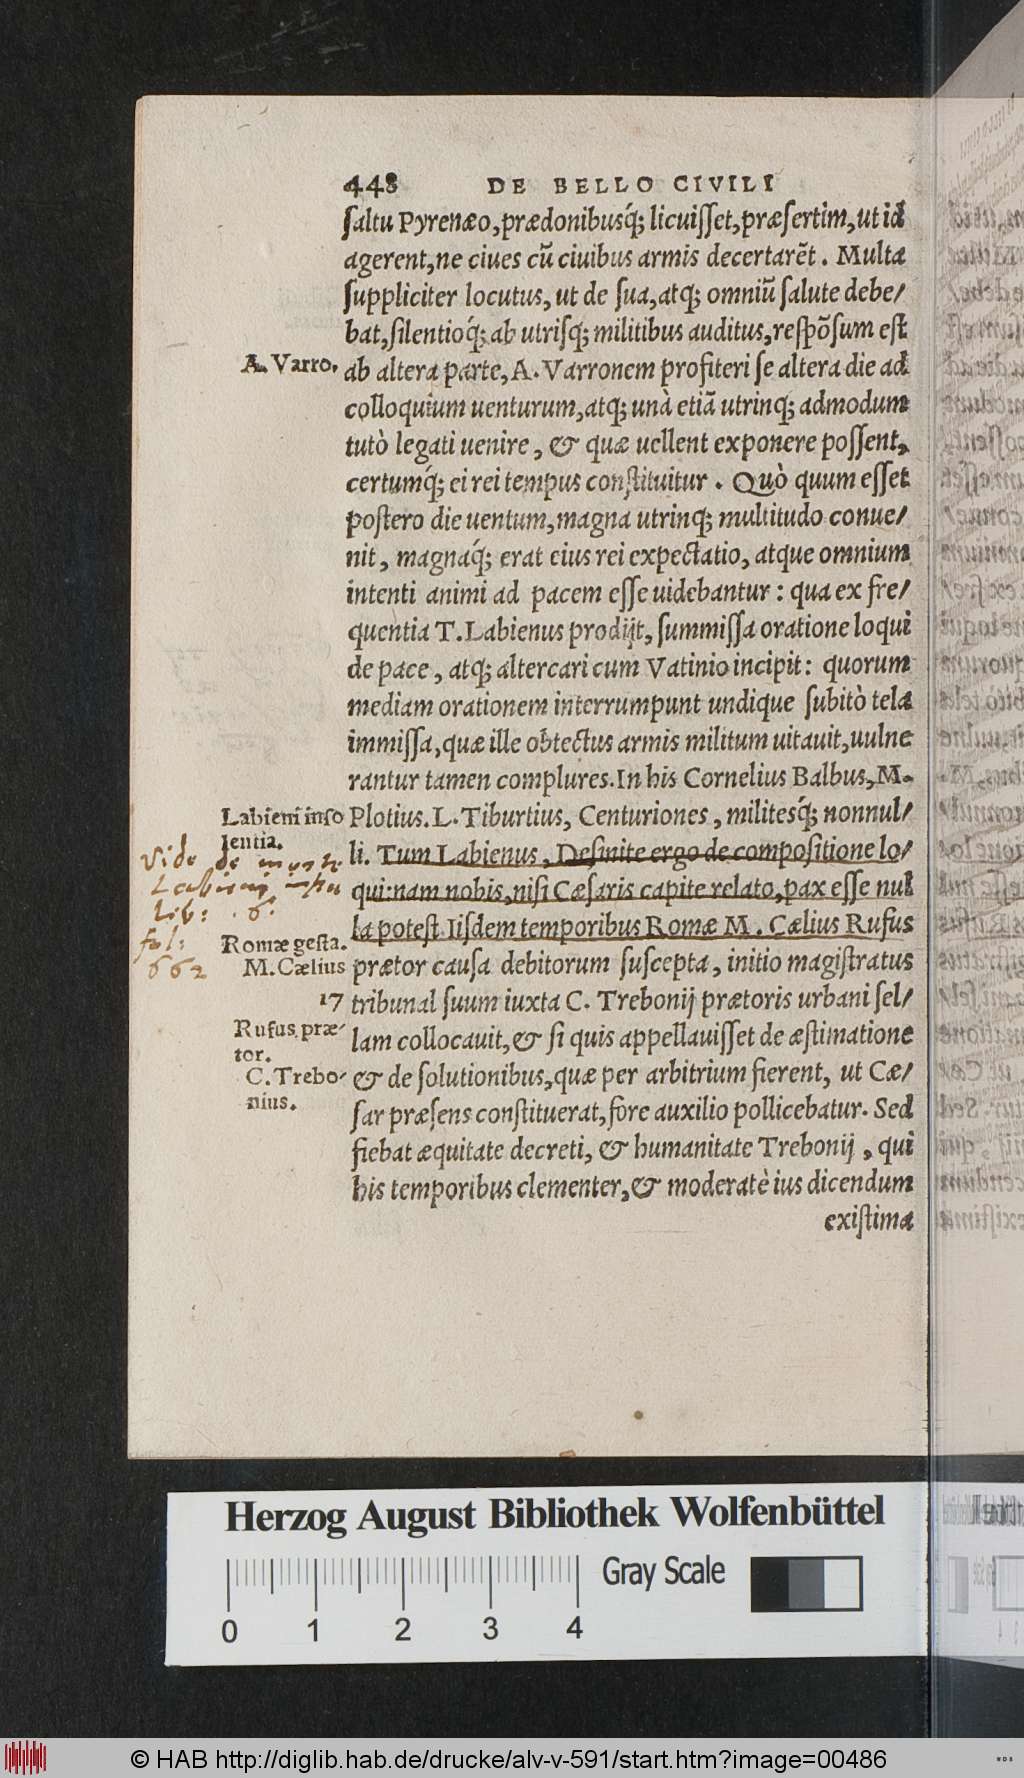 448 DE BELLO CIVILI
ſaltu Pyrenæo, prædonibusq́; licuiſſet, præſertim, ut id
agerent, ne ciues cū ciuibus armis decertarēt. Multa
ſuppliciter locutus, ut de ſua, atq; omniū ſalute debe/
bat, ſilentioq́; ab utriſq; militibus auditus, reſpōſum eſt
A. Varro.
ab altera parte, A. Varronem profiteri ſe altera die ad
colloquium uenturum, atq; unà etiā utrinq; admodum
tutò legati uenire, & quæ uellent exponere poſſent,
certumq́; ei rei tempus conſtituitur. Quò quum eſſet
poſtero die uentum, magna utrinq; multitudo conue/
nit, magnaq́; erat eius rei expectatio, atque omnium
intenti animi ad pacem eſſe uidebantur: qua ex fre/
quentia T. Labienus prodijt, ſummiſſa oratione loqui
de pace, atq; altercari cum Vatinio incipit: quorum
mediam orationem interrumpunt undique ſubitò tela
immiſſa, quæ ille obtectus armis militum uitauit, uulne
rantur tamen complures. In his Cornelius Balbus, M.
Labieni inſo
lentia.
Plotius. L. Tiburtius, Centuriones, militesq́; nonnul/
li. Tum Labienus, Deſinite ergo de compoſitione lo/
qui: nam nobis, niſi Cæſaris capite relato, pax eſſe nul
la poteſt. Iiſdem temporibus Romæ M. Cælius Rufus
Vide de morte
Labieni
lib: .6.
fol:
662
Romæ geſta.
M. Cælius
17
Rufus præ/
tor.
C. Trebo/
nius.
prætor cauſa debitorum ſuſcepta, initio magiſtratus
tribunal ſuum iuxta C. Trebonij prætoris urbani ſel/
lam collocauit, & ſi quis appellauiſſet de æſtimatione
& de ſolutionibus, quæ per arbitrium fierent, ut Cæ/
ſar præſens conſtituerat, fore auxilio pollicebatur. Sed
fiebat æquitate decreti, & humanitate Trebonij, qui
his temporibus clementer, & moderatè ius dicendum
exiſtima
Herzog August Bibliothek Wolfenbüttel
Gray Scale
0 1 2 3 4
© HAB http://diglib.hab.de/drucke/alv-v-591/start.htm?image=00486